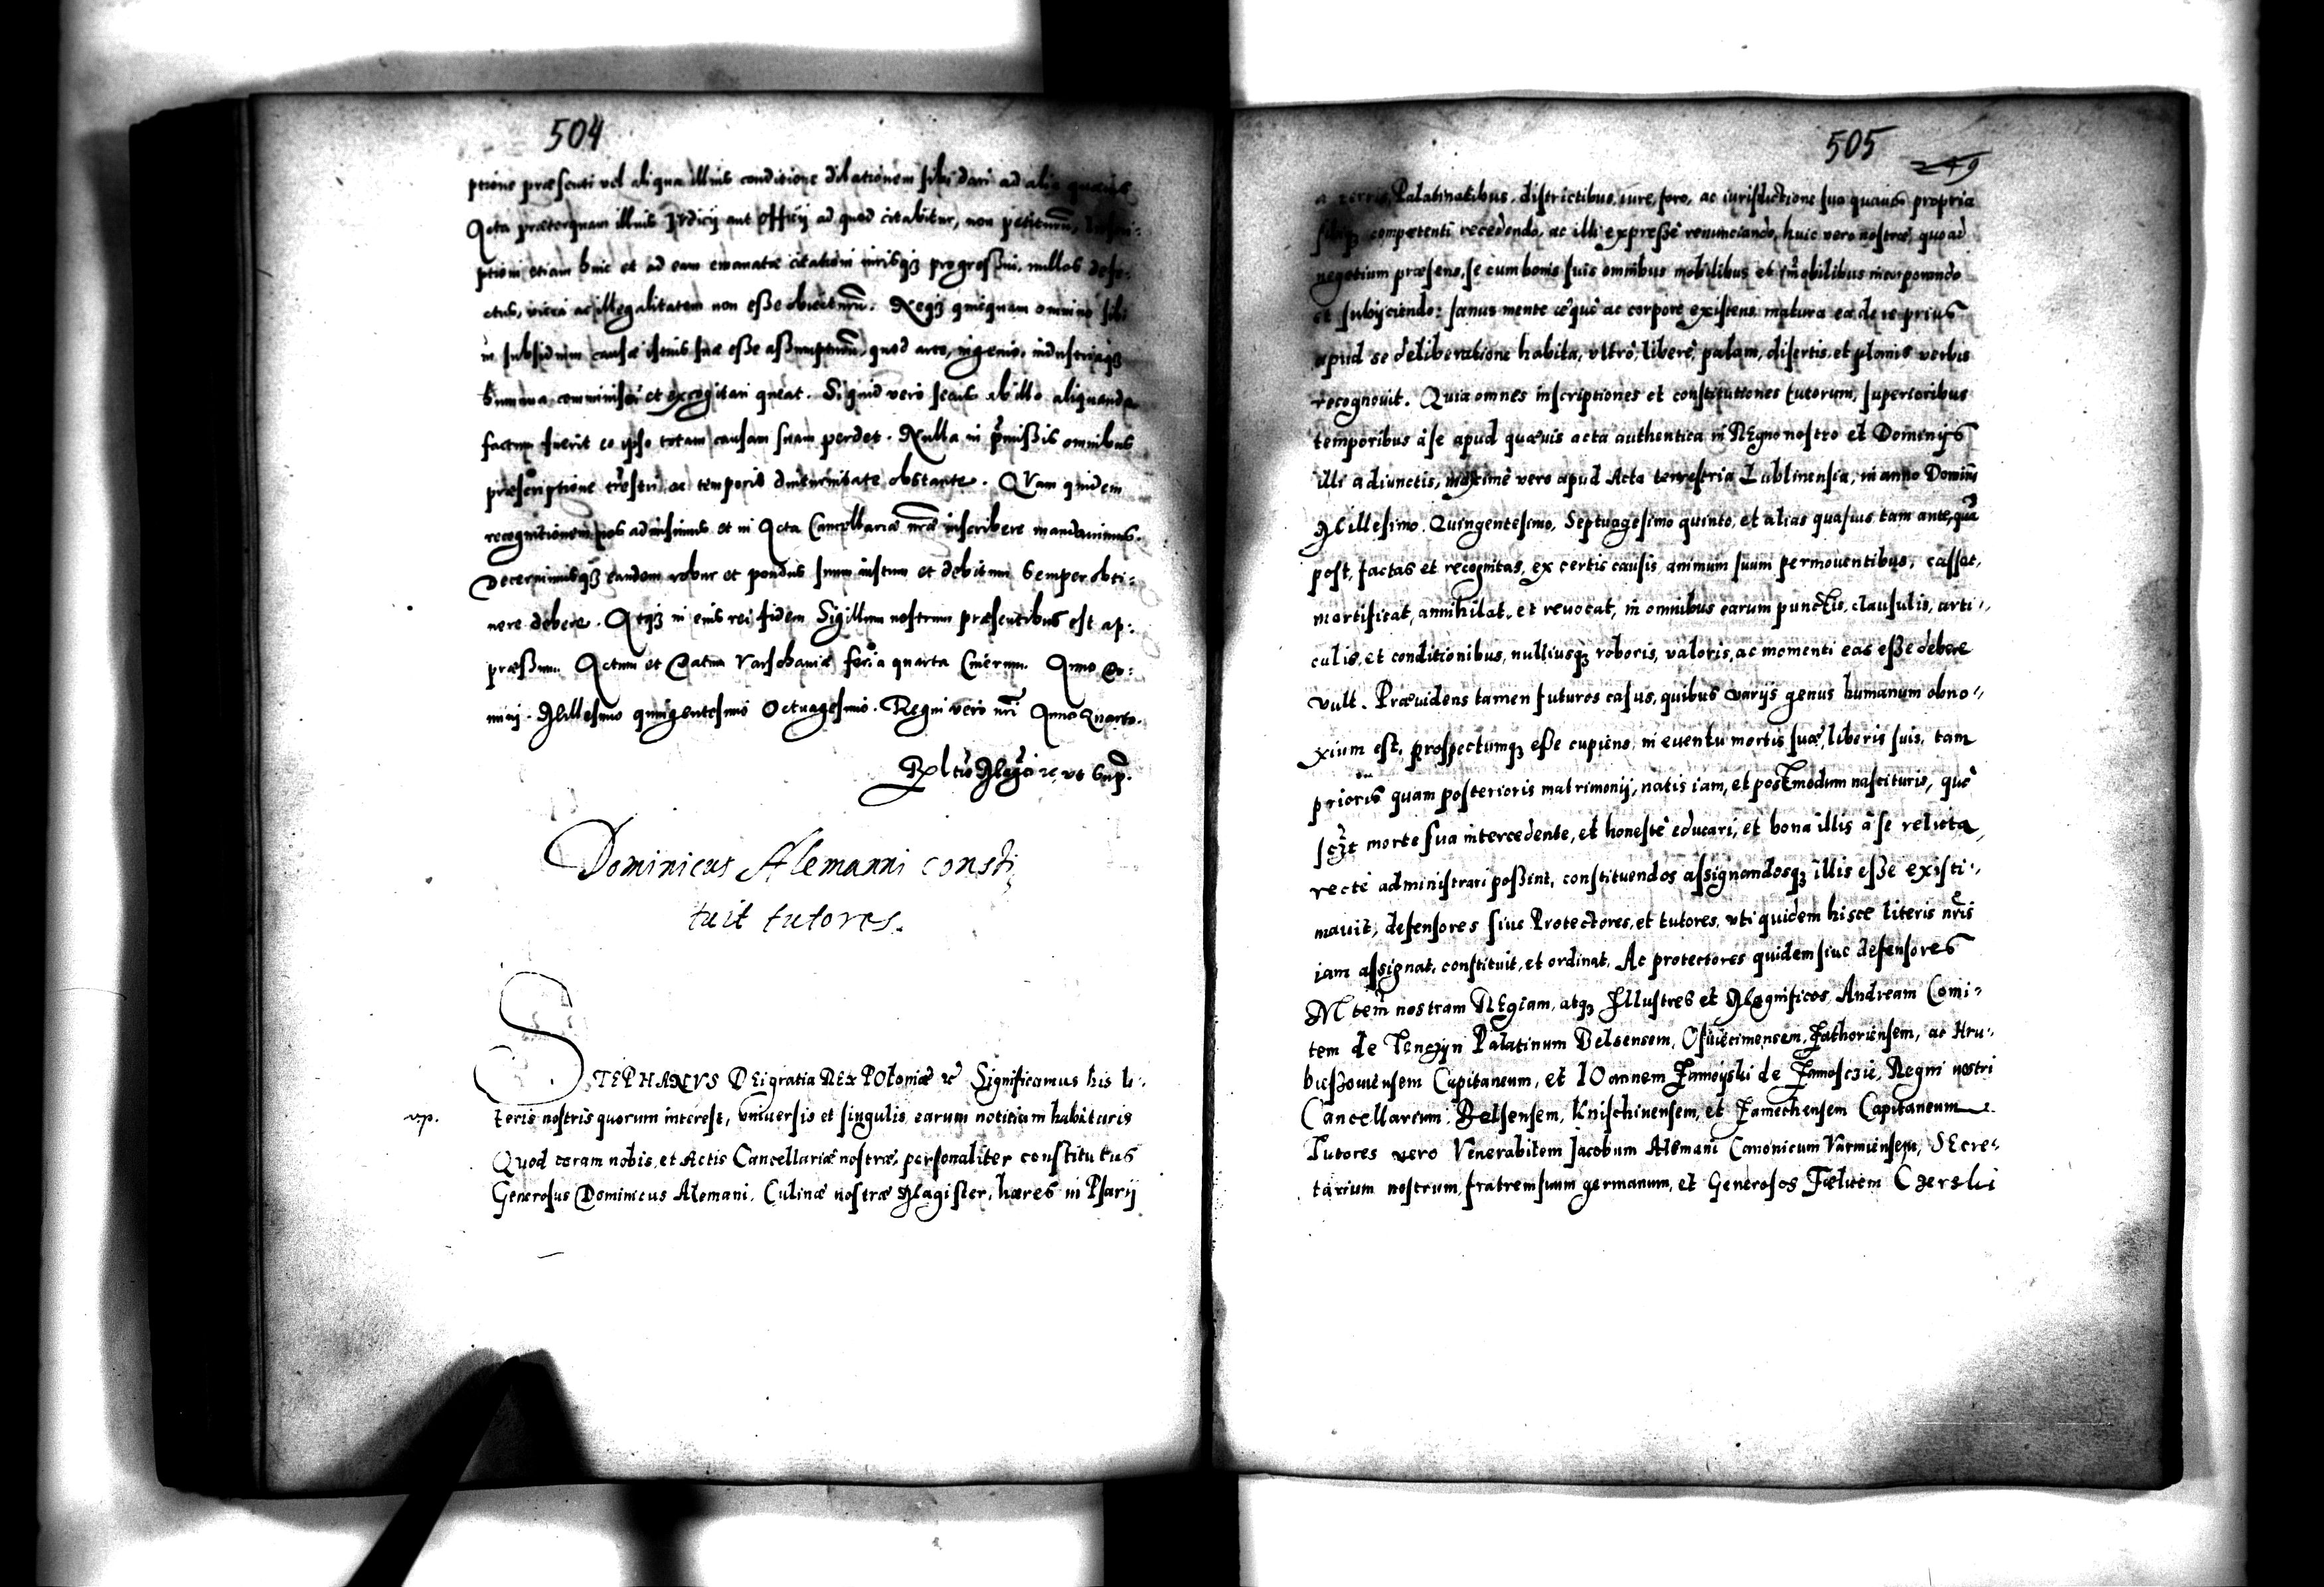 504
ptione præsenti vel aliqua illius conditione dilationem sibi dari ad alia quævis
Acta præterquam illius Iudicij aut Officij ad quod citabitur, non petiturum, Inscri:
ptioni etiam huic et ad eam emanatæ citationi iurisq3 progressui, nullos defe:
ctus, vicia ac illegalitatem non esse obiecturum. Neq3 quicquam omnino sibi
in subsidium causæ istius suæ esse assumpturum, quod arte, ingenio, industriaq3
humana comminisci et excogitari queat. Si quid vero secus ab illo aliquando
factum fuerit eo ipso totam causam suam perdet. Nulla in præmissis omnibus
præscriptione trestri ac temporis diuturnitate obstante. Quam quidem
recognitionem nos admisimus et in Acta Cancellariæ nræ inscribere mandavimus.
Decernimusq3 eandem robur et pondus suum iustum et debitum semper obti:
nere debere. Atq3 in eius rei fidem Sigillum nostrum præsentibus est ap:
præssum. Actum et Datum Varschaviæ feria quarta Cinerum. Anno Do:
mini. Millesimo quingentesimo Octuagesimo. Regni vero nri Anno Quarto.
Rltio Mgci rc, ut Sup.
Dominicus Alemanni consti,
tuit tutores.
STEPHANVS DEi gratia REx POloniæ rc Significamus his li:
vp. teris nostris quorum interest, universis et singulis earum noticiam habituris
Quod coram nobis, et Actis Cancellariæ nostræ, personaliter constitutus
Generosus Dominicus Alemani, Culinæ nostræ Magister, hæres in Psarij
505
249
a terris, Palatinatibus, districtibus, iure, foro, ac iurisdictione sua quavis propria
sibiq3 competenti recedendo, ac illi expresse renunciando, huic vero nostræ, quoad
negotium præsens, se cum bonis suis omnibus mobilibus et imobilibus incorporando
et subijciendo: sanus mente æque ac corpore existens, matura ea de re prius
apud se deliberatione habita, ultro, libere, palam, disertis, et planis verbis
recognovit. Quia omnes inscriptiones et constitutiones tutorum, superioribus
temporibus à se apud quævis acta authentica in REgno nostro et Dominijs
illi adiunctis, maxime vero apud Acta terrestria Lublinensia, in anno Domini
Millesimo. Quingentesimo, Septuagesimo quinto, et alias quasvis tam ante, qua
post, factas et recognitas, ex certis causis, animum suum permoventibus, cassat,
mortificat, annihilat, et revocat, in omnibus earum punctis, clausulis, arti:
culis, et conditionibus, nulliusq3 roboris, valoris, ac momenti eas esse debere
vult. Prævidens tamen futuros casus, quibus varijs genus humanum obno:
xium est, prospectumq3 esse cupiens, in eventu mortis suæ, liberis suis, tam
prioris quam posterioris matrimonij, natis iam, et postmodum nascituris, quò
sc3t morte sua intercedente, et honeste educari, et bona illis à se relicta,
recte administrari possint, constituendos assignandosq3 illis esse existi:
mavit, defensores sive Protectores, et tutores, uti quidem hisce literis nris
iam assignat, constituit, et ordinat. Ac protectores quidem sive defensores
Mtem nostram REgiam, atq3 Illustres et Magnificos, Andream Comi:
tem de Tenczyn Palatinum Belsensem, Osviecimensem, Zathoriensem, ac Hru:
bieszoviensem Capitaneum, et IOannem Zamoyski de Zamosczie, Regni nostri
Cancellarium, Belsensem, Knischinensem, et Zamechensem Capitaneum
Tutores vero Venerabilem Jacobum Alemani Canonicum Varmiensem, SEcre:
tarium nostrum, fratrem suum germanum, et Generosos Fælicem Czerski